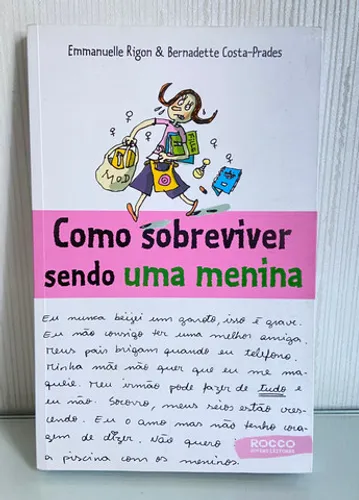 Emmanuelle Rigon & Bernadette Costa-Prades
MOD
Como sobreviver
sendo uma menina
Eu nunca beijei um garoto, isso é grave.
Eu não consigo ter uma melhor amiga.
Meus pais brigam quando eu telefono.
Minha mãe não quer que eu me ma-
quie. Meu irmão pode fazer de tudo e
eu não. Socorro, meus seios estão cres-
cendo. Eu o amo mas não tenho cora-
gem de dizer. Não quero ir
a piscina com os meninos.
ROCCO
JOVENS LEITORES